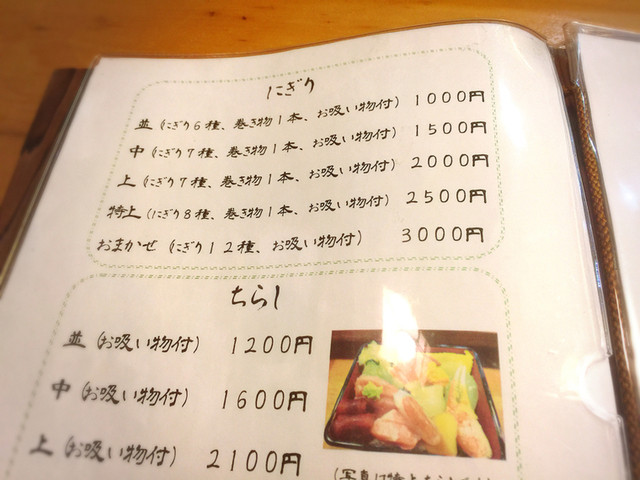 にぎり
並（にぎり６種、巻き物１本、お吸い物付）１０００円
中（にぎり７種、巻き物１本、お吸い物付）１５００円
上（にぎり７種、巻き物１本、お吸い物付）２０００円
特上（にぎり８種、巻き物１本、お吸い物付）２５００円
おまかせ（にぎり１２種、お吸い物付）３０００円
ちらし
並（お吸い物付）１２００円
中（お吸い物付）１６００円
上（お吸い物付）２１００円
（写真は特上ちらし